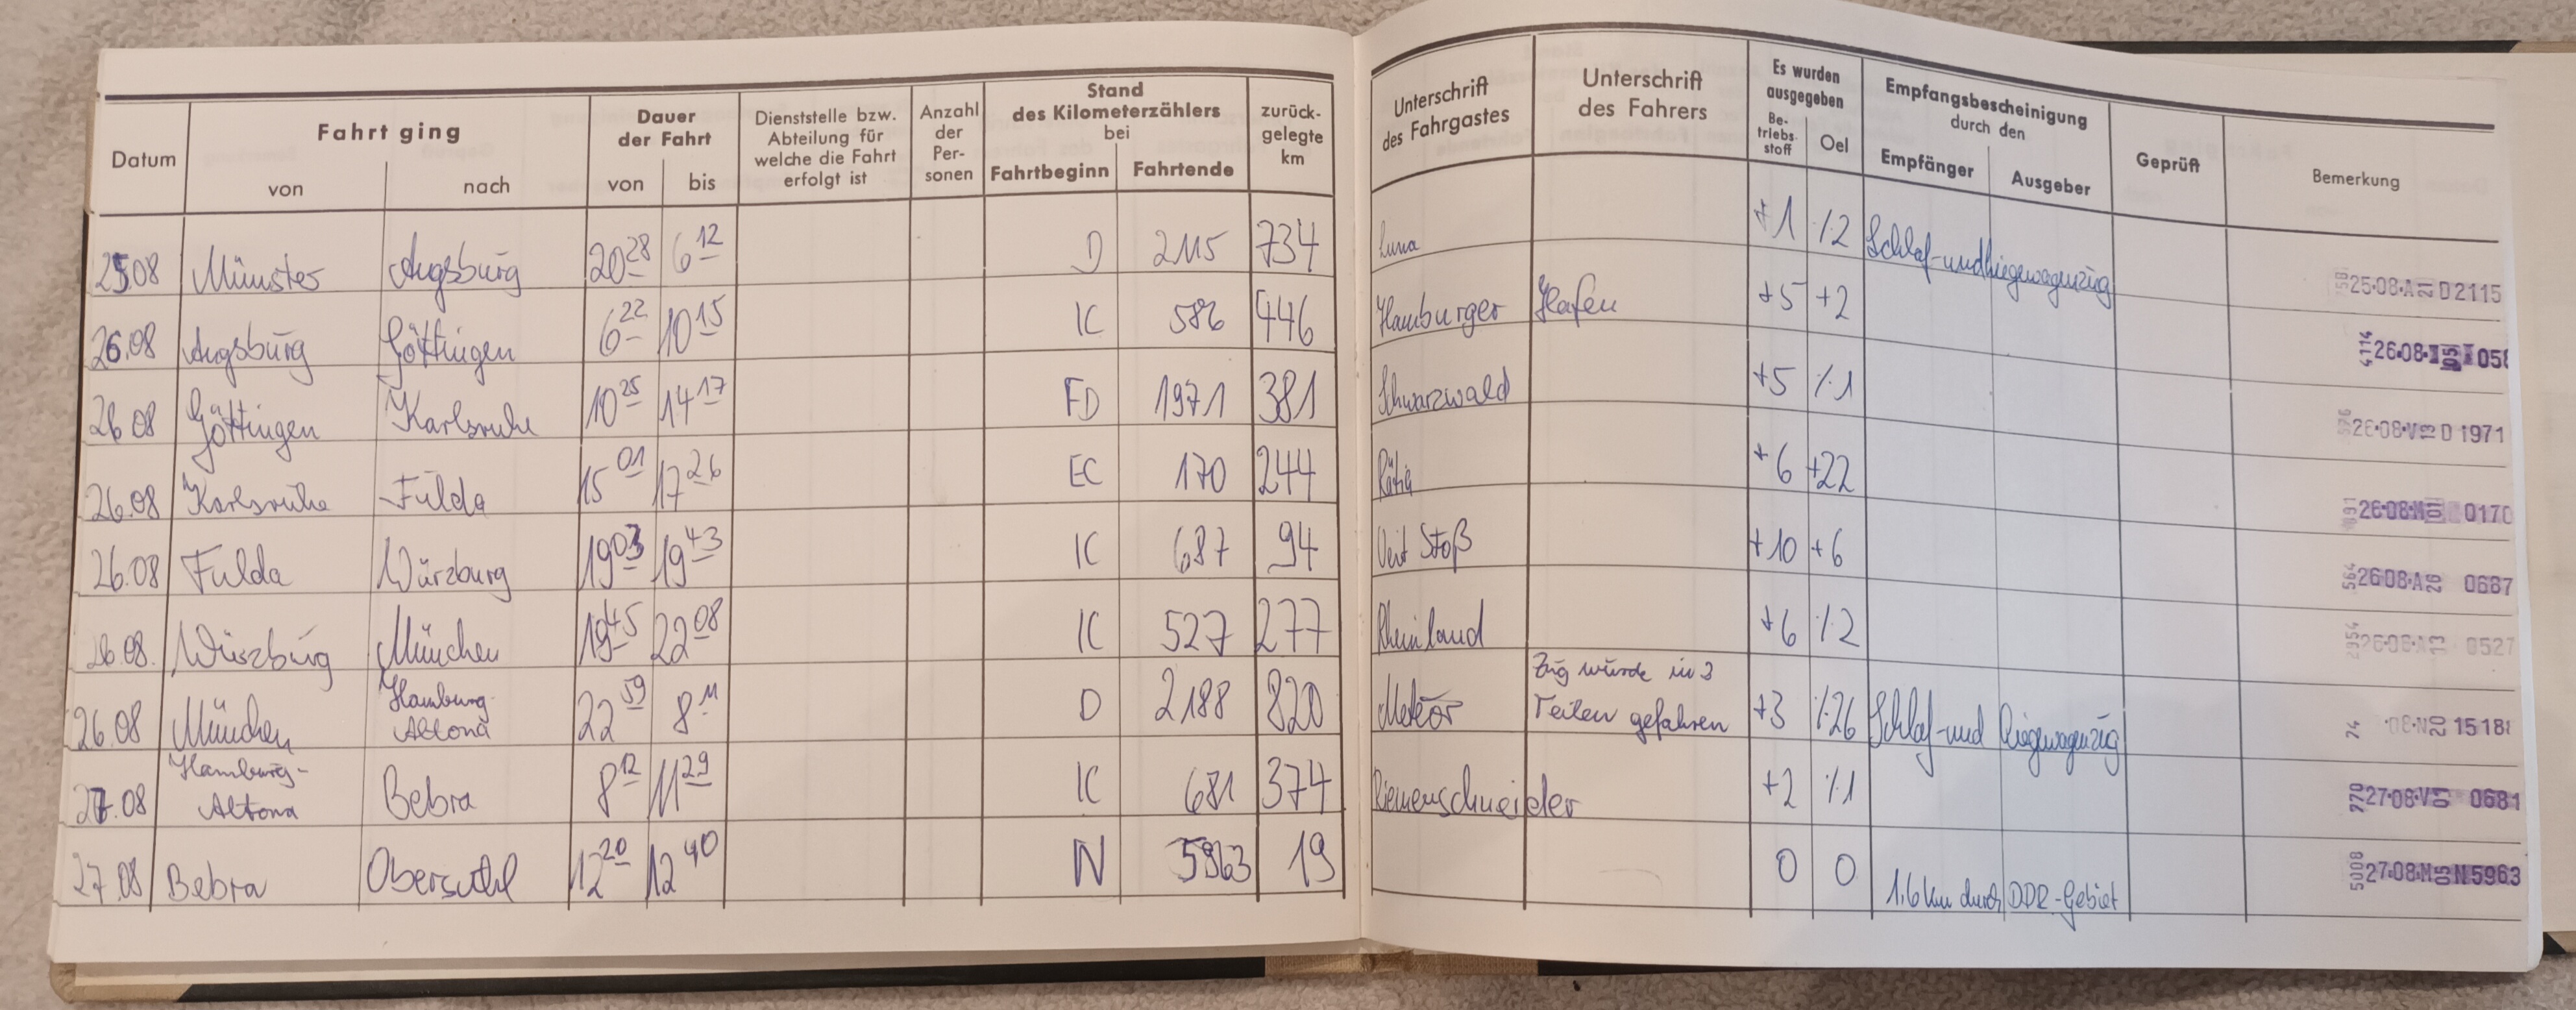 Datum Fahrt ging von nach Dauer der Fahrt von bis Dienststelle bzw. Abteilung für welche die Fahrt erfolgt ist Anzahl der Per- sonen Stand des Kilometerzählers bei Fahrtbeginn Fahrtende zurück- gelegte km Unterschrift des Fahrgastes Unterschrift des Fahrers Es wurden ausgegeben Be- triebs- stoff Oel Empfangsbescheinigung durch den Empfänger Ausgeber Geprüft Bemerkung
25.08 Münster Augsburg 20 28 6 12 D 2115 734 Luna +1 ⁒2 Schlaf- und Liegewagenzug 25·08·A 21 D2115
26.08 Augsburg Göttingen 6 22 10 15 IC 586 446 Hamburger Hafen +5 +2 4114 26·08· 05 058
26 08 Göttingen Karlsruhe 10 25 14 17 FD 1971 381 Schwarzwald +5 ⁒1 26·08·V 13 D 1971
26.08 Karlsruhe Fulda 15 01 17 26 EC 170 244 Rätia +6 +22 26·08·M 01 0170
26.08 Fulda Würzburg 19 03 19 43 IC 687 94 Veit Stoß +10 +6 564 26·08·A 26 0687
26.08. Würzburg München 19 45 22 08 IC 527 277 Rheinland +6 ⁒2 2954 26·08·A 13 0527
26.08 München Hamburg- Altona 22 59 8 11 D 2188 820 Meteor Zug wurde in 3 Teilen gefahren +3 ⁒26 Schlaf- und Liegewagenzug 74 08·N 20 1518
27.08 Hamburg- Altona Bebra 8 12 11 29 IC 681 374 Riemenschneider +2 ⁒1 770 27·08·V 01 0681
27.08 Bebra Obersuhl 12 20 12 40 N 5963 19 0 0 1,6 km durch DDR-Gebiet 5008 27·08·M 05 N5963